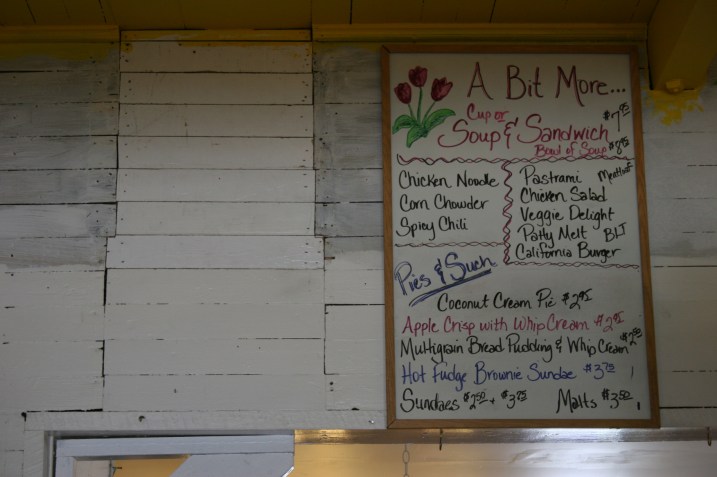 A Bit More...
Cup or $7.95
Soup & Sandwich
Bowl of Soup $8.95
Chicken Noodle
Corn Chowder
Spicy Chili
Pastrami Meatloaf
Chicken Salad
Veggie Delight
Patty Melt BLT
California Burger
Pies & Such
Coconut Cream Pie $2.95
Apple Crisp with Whip Cream $2.95
Multigrain Bread Pudding & Whip Cream
Hot Fudge Brownie Sundae $3.75
Sundaes $2.50 + $3.75 Malts $3.50